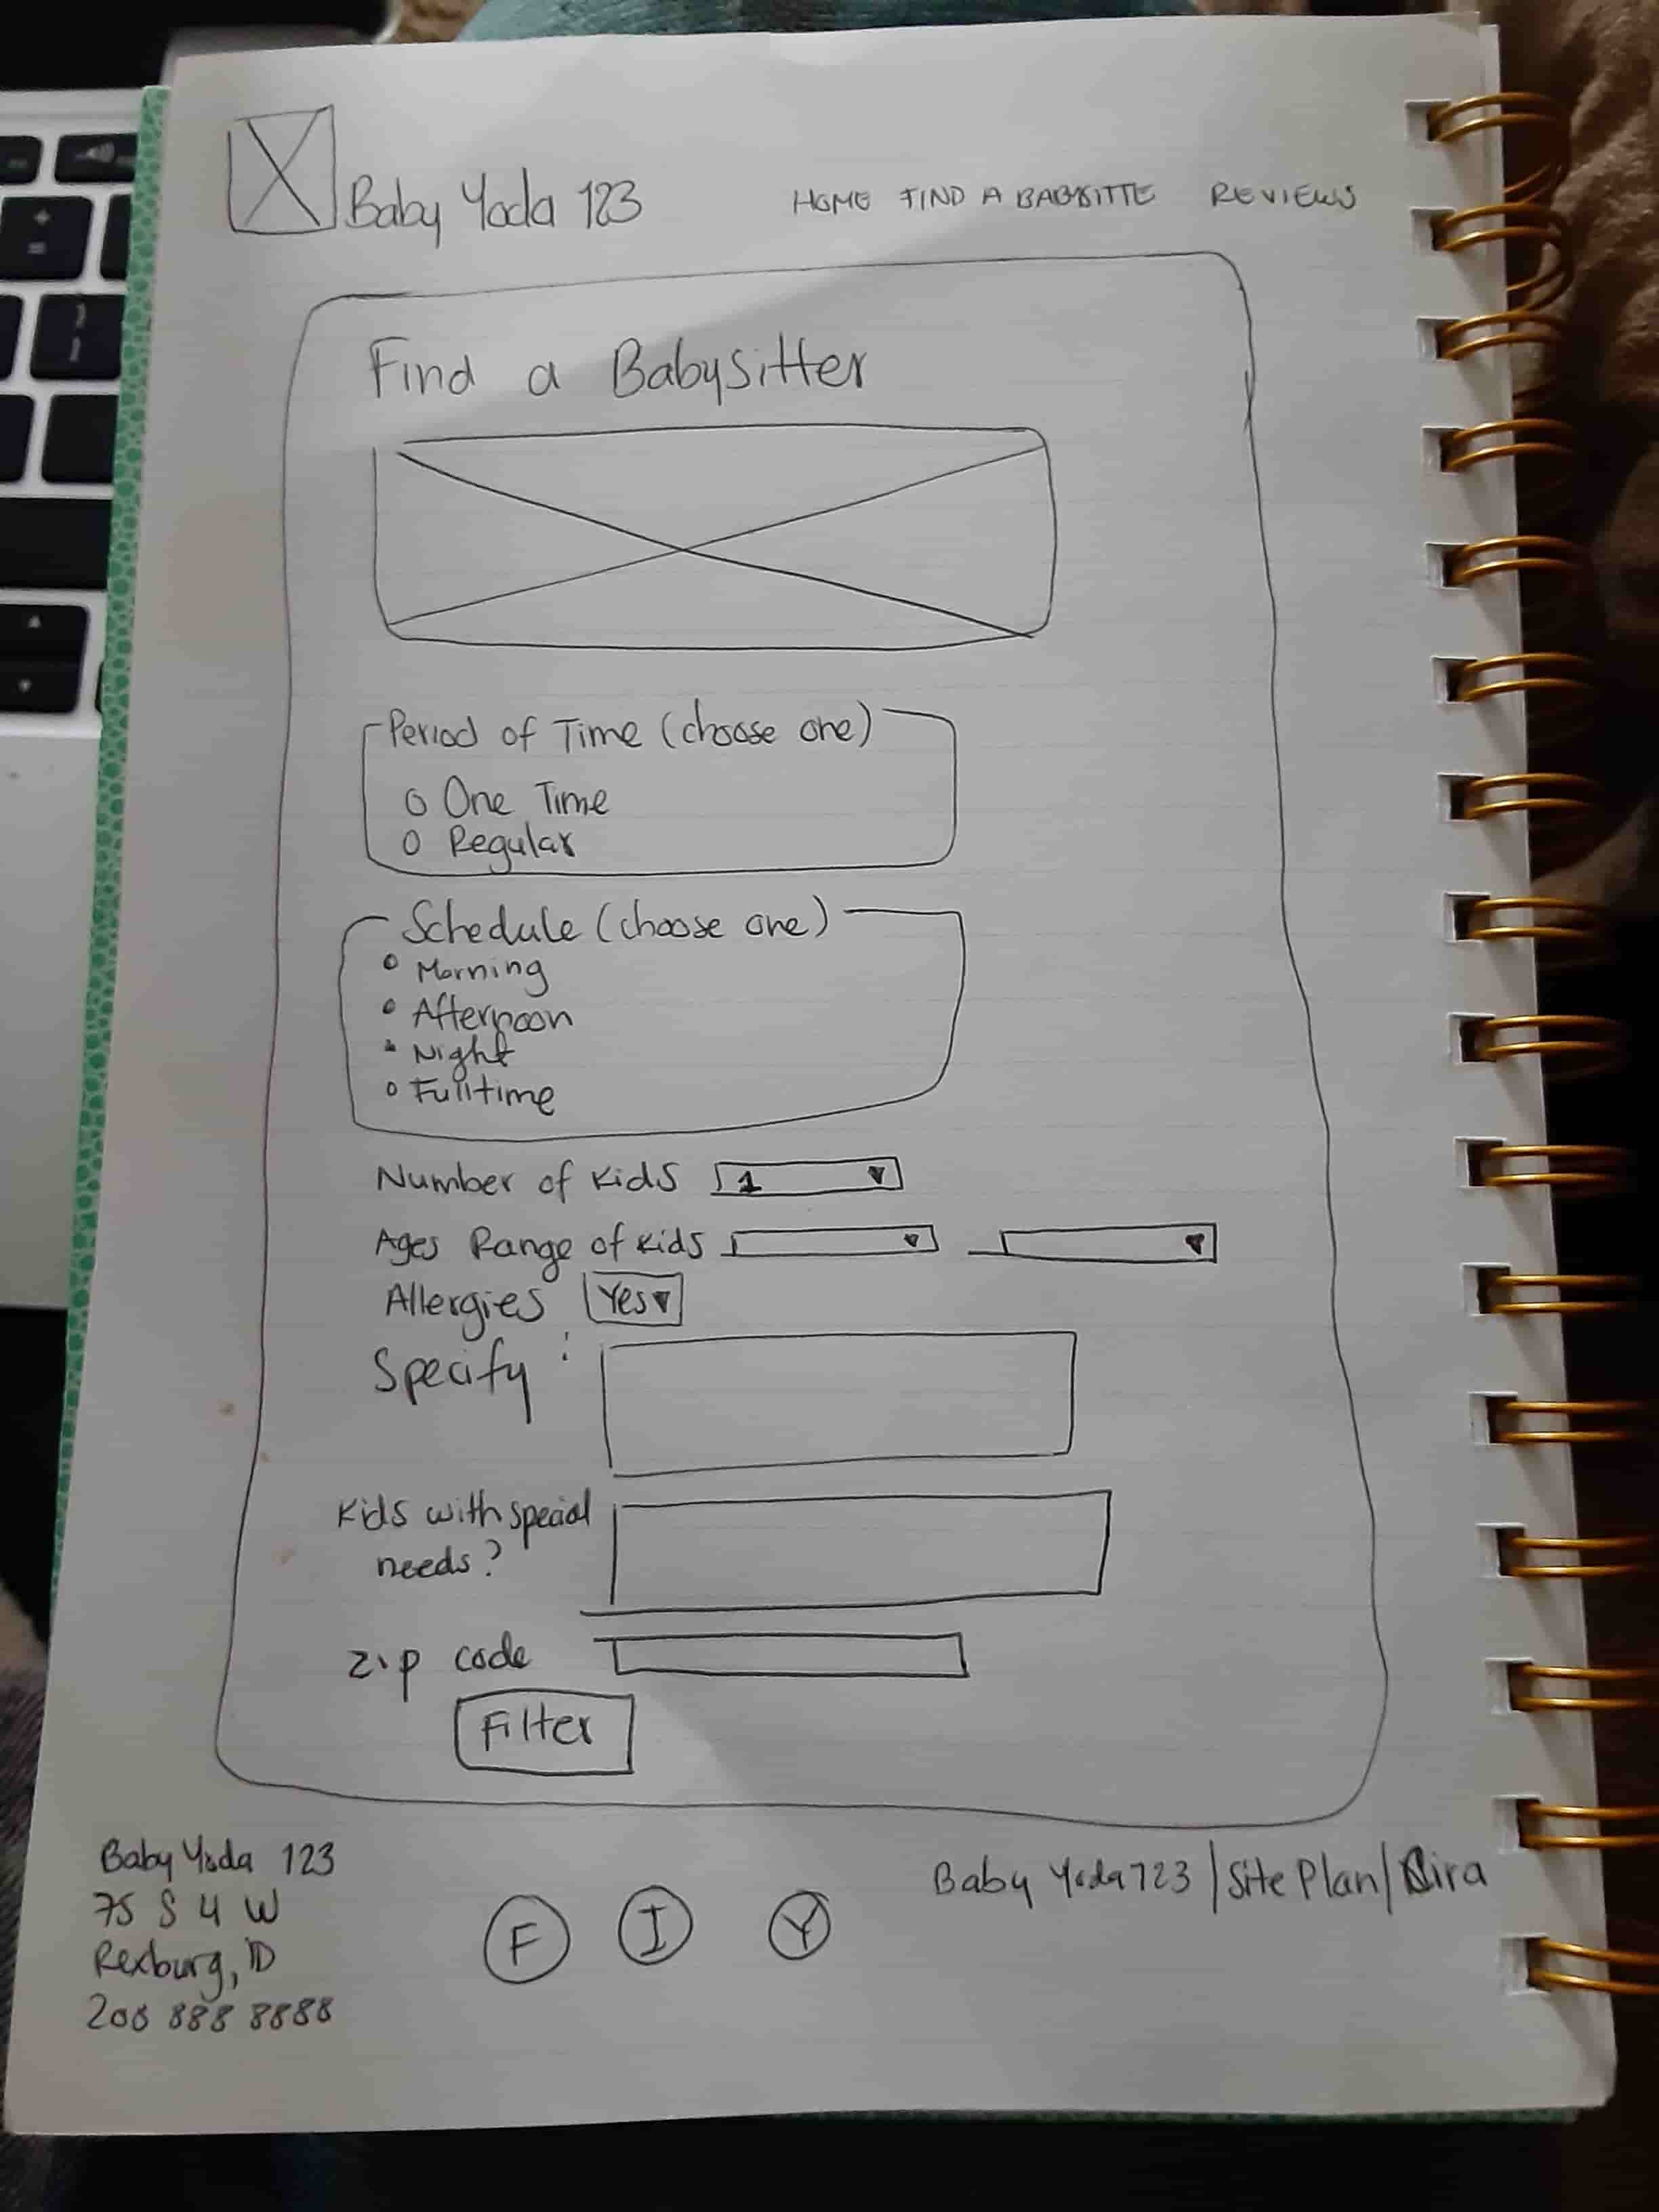 Baby Yoda 123
HOME FIND A BABYSITTE REVIEWS
Find a Babysitter
Period of Time (choose one)
One Time
Regular
Schedule (choose one)
Morning
Afternoon
Night
Fulltime
Number of Kids 1
Ages Range of Kids
Allergies Yes
Specify :
Kids with special
needs?
Zip code
Filter
Baby Yoda 123
75 S 4 W
Rexburg, ID
208 888 8888
F I Y
Baby Yoda 123 | Site Plan /